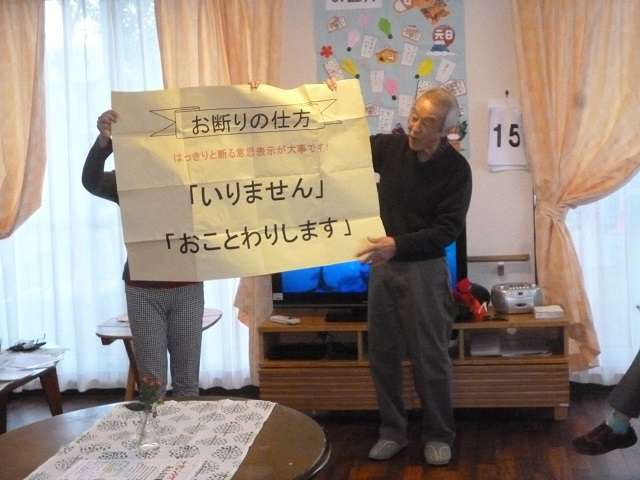 お断りの仕方
はっきりと断る意思表示が大事です!
「いりません」
「おことわりします」
元日
15